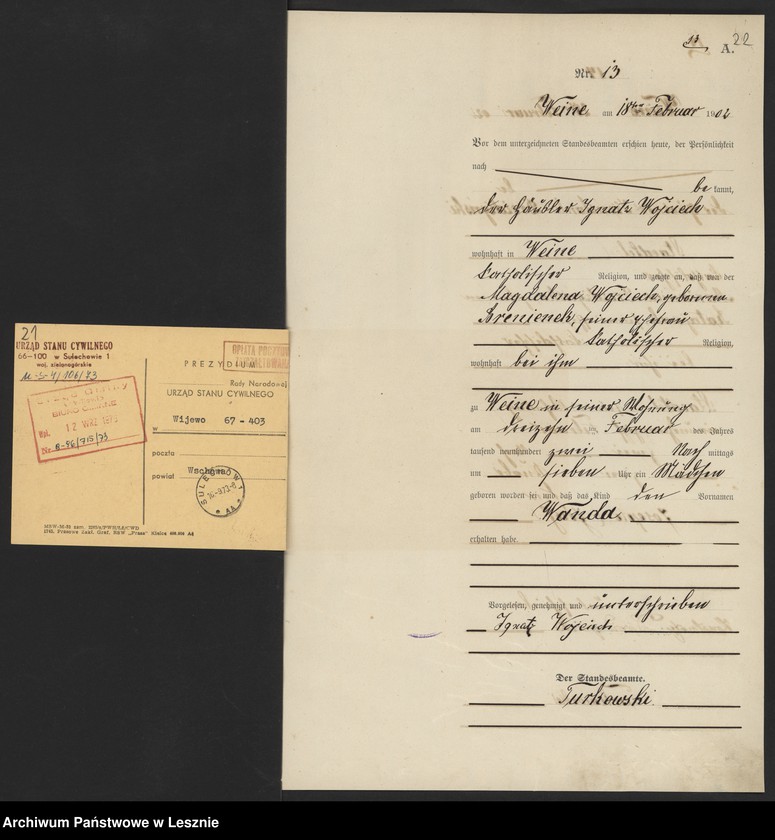 21
URZĄD STANU CYWILNEGO
66-100 w Sulechowie 1
woj. zielonogórskie
12 WRZ 1973
PREZYDIUM
Rady Narodowej
URZĄD STANU CYWILNEGO
w Wijewo 67 - 403
poczta
powiat Wschowa
SULECHÓW 1
AA
13 A. 22
Nr. 13
Weine am 18ten Februar 1902
Vor dem unterzeichneten Standesbeamten erschien heute, der Persönlichkeit
nach
be kannt,
der Häusler Ignatz Wojciech
wohnhaft in Weine
katholischer Religion, und zeigte an, daß von der
Magdalena Wojciech, geborenen
seiner Ehefrau
katholischer Religion,
wohnhaft bei ihm
zu Weine in seiner Wohnung
am dreizehn ten Februar des Jahres
tausend neunhundert zwei Nach mittags
um sieben Uhr ein Mädchen
geboren worden sei und daß das Kind den Vornamen
Wanda
erhalten habe.
Vorgelesen, genehmigt und unterschrieben
Ignatz Wojciech
Der Standesbeamte.
Turkowski
Archiwum Państwowe w Lesznie